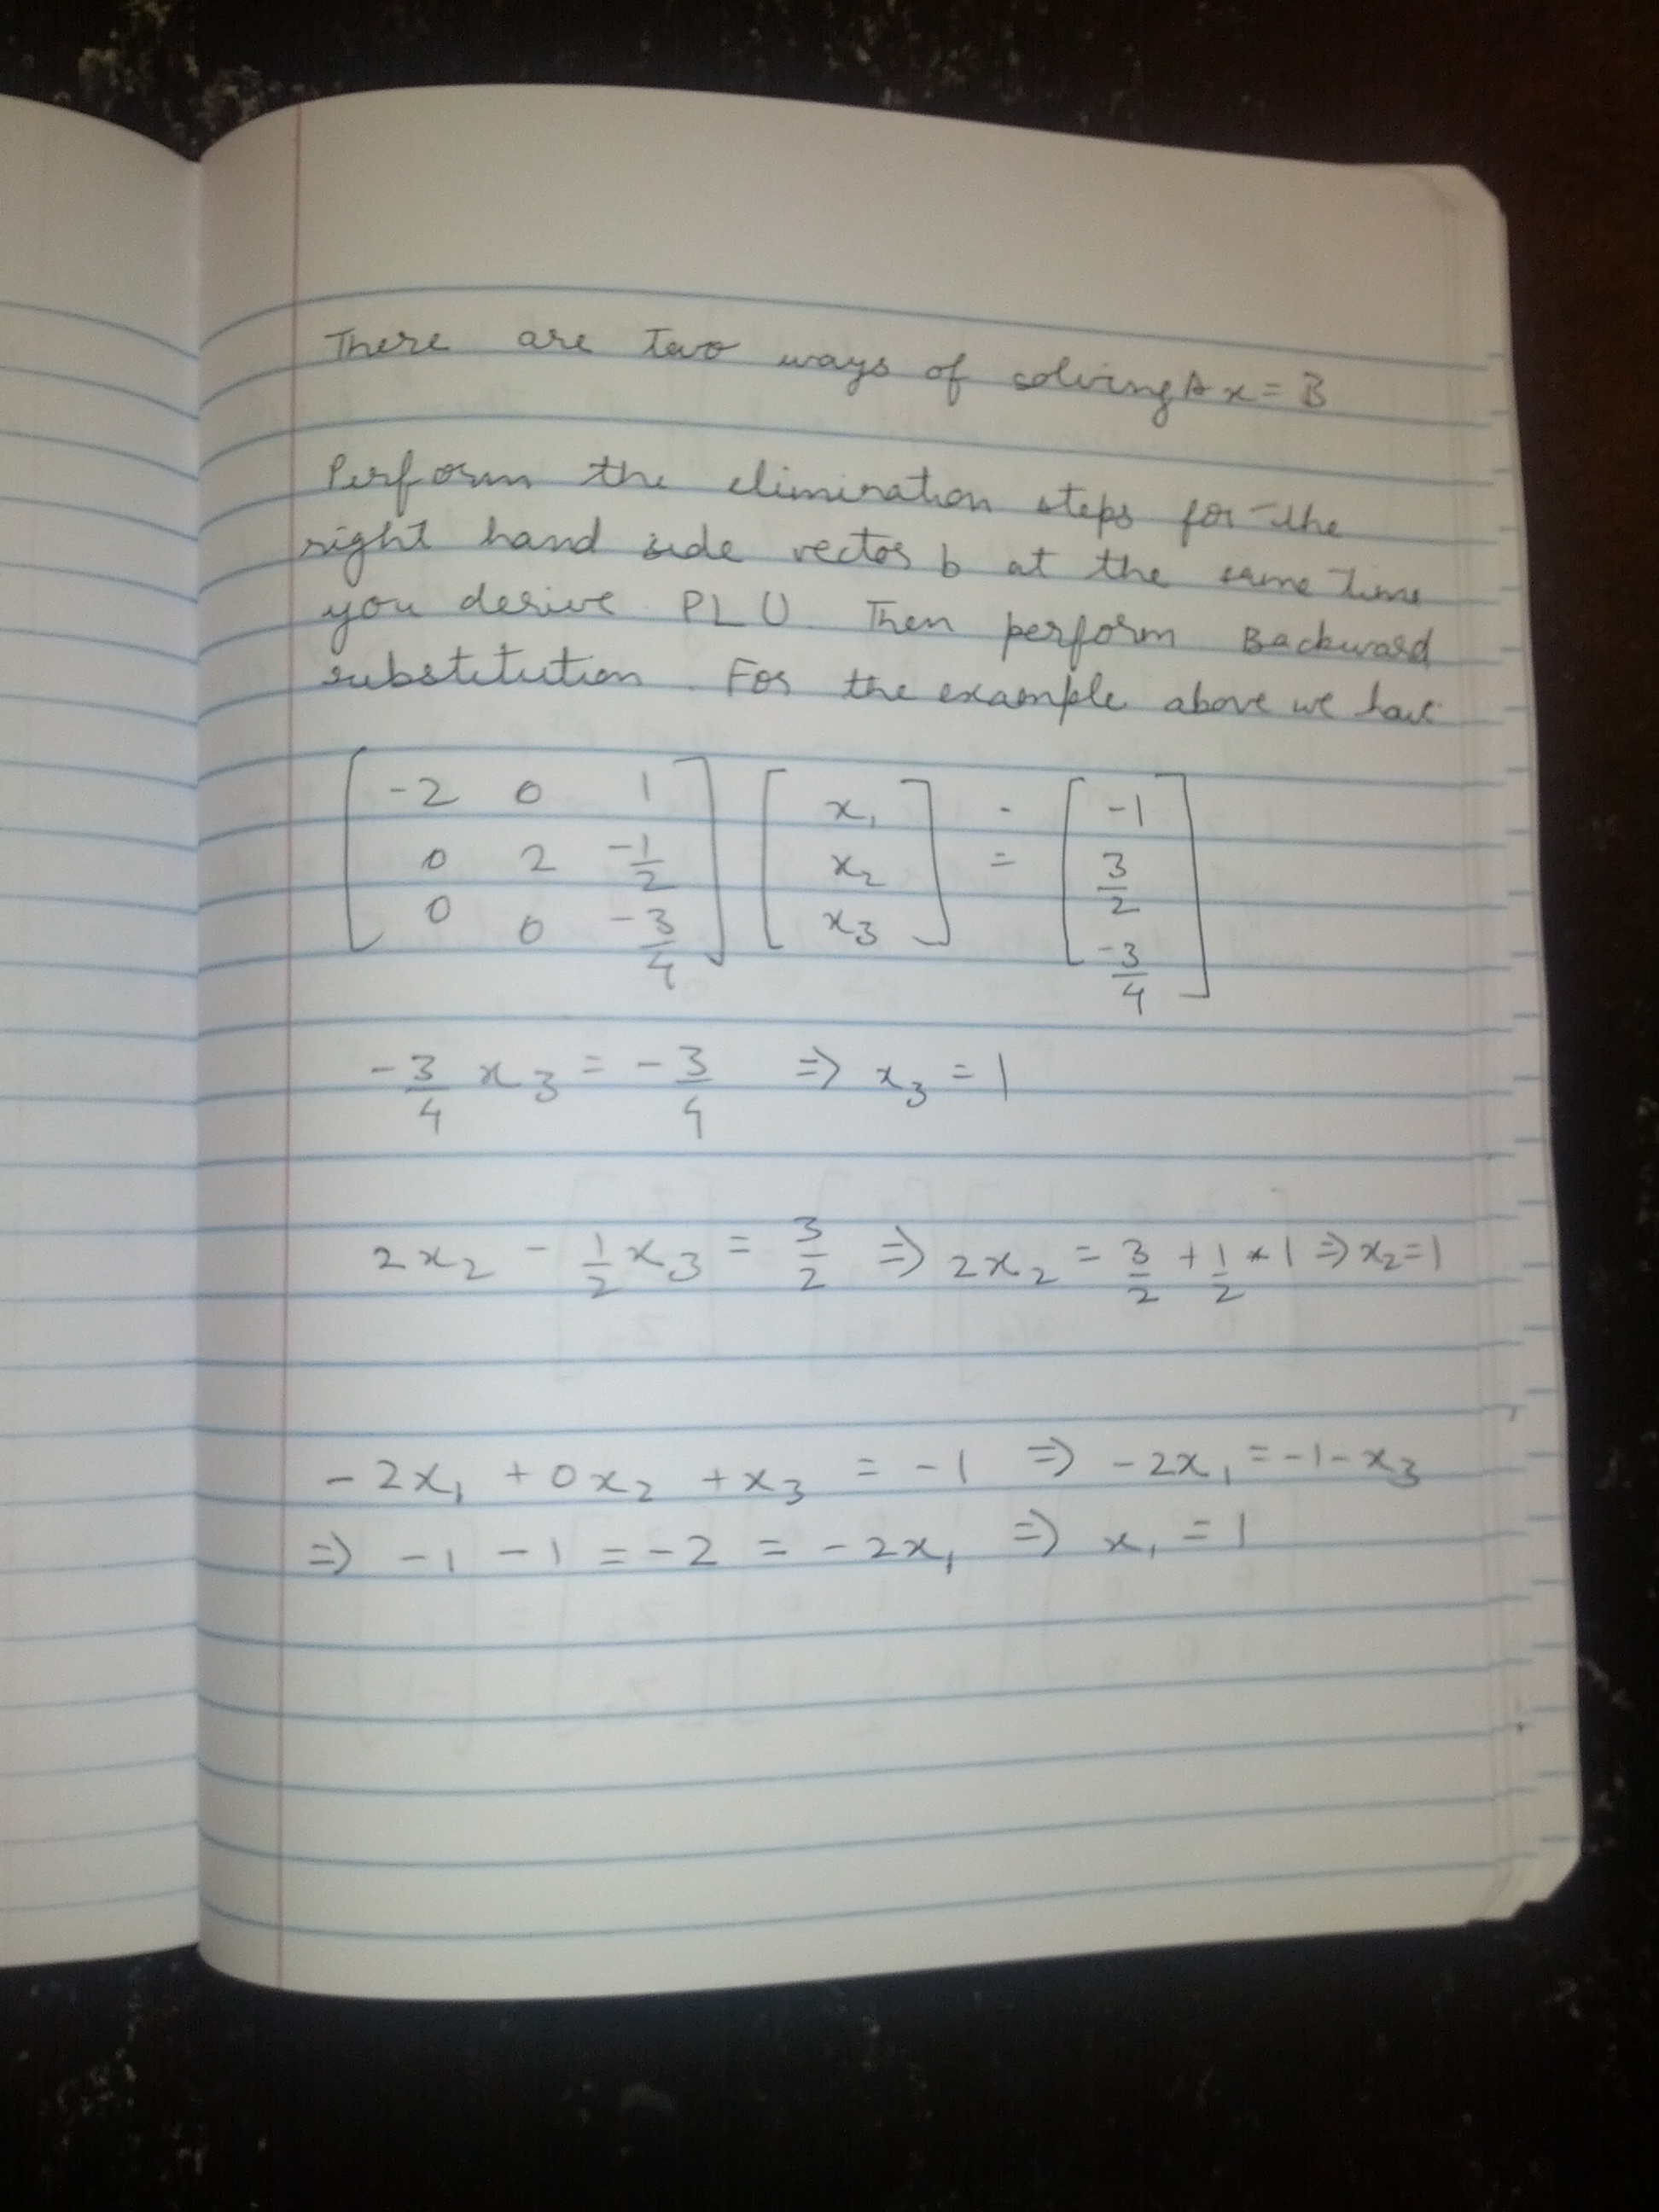 There are two ways of solving Ax = B
Perform the elimination steps for the
right hand side vector b at the same time
you derive PLU. Then perform Backward
substitution. For the example above we have
[ -2 0 1 ; 0 2 -1/2 ; 0 0 -3/4 ] [ x₁ ; x₂ ; x₃ ] = [ -1 ; 3/2 ; -3/4 ]
-3/4 x₃ = -3/4 => x₃ = 1
2x₂ - 1/2 x₃ = 3/2 => 2x₂ = 3/2 + 1/2 * 1 => x₂ = 1
-2x₁ + 0x₂ + x₃ = -1 => -2x₁ = -1 - x₃
=> -1 - 1 = -2 = -2x₁ => x₁ = 1